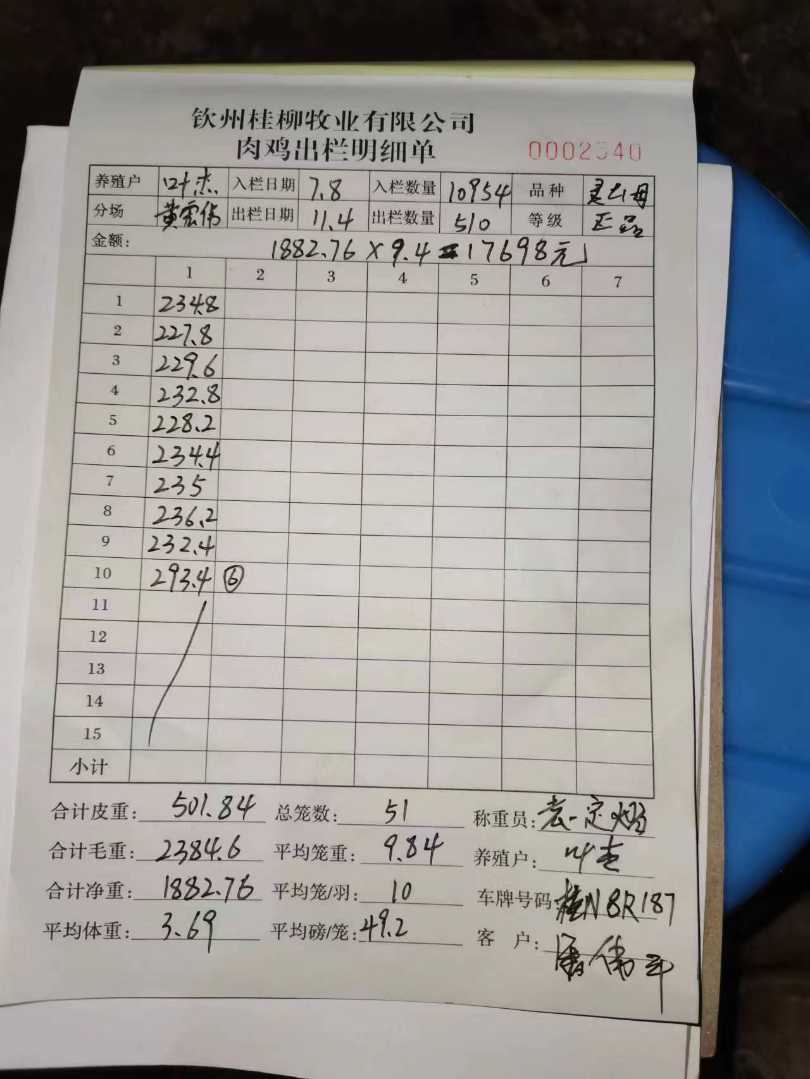 钦州桂柳牧业有限公司
肉鸡出栏明细单 0002540
养殖户 叶杰 入栏日期 7.8 入栏数量 10954 品种 灵山母
分场 黄宏伟 出栏日期 11.4 出栏数量 510 等级 正品
金额: 1882.76×9.4=17698元
1 2 3 4 5 6 7
1 234.8
2 227.8
3 229.6
4 232.8
5 228.2
6 234.4
7 235
8 236.2
9 232.4
10 293.4 ⑥
11
12
13
14
15
小计
合计皮重: 501.84 总笼数: 51 称重员:
合计毛重: 2384.6 平均笼重: 9.84 养殖户: 叶杰
合计净重: 1882.76 平均笼/羽: 10 车牌号码: 桂N8R187
平均体重: 3.69 平均磅/笼: 49.2 客 户: